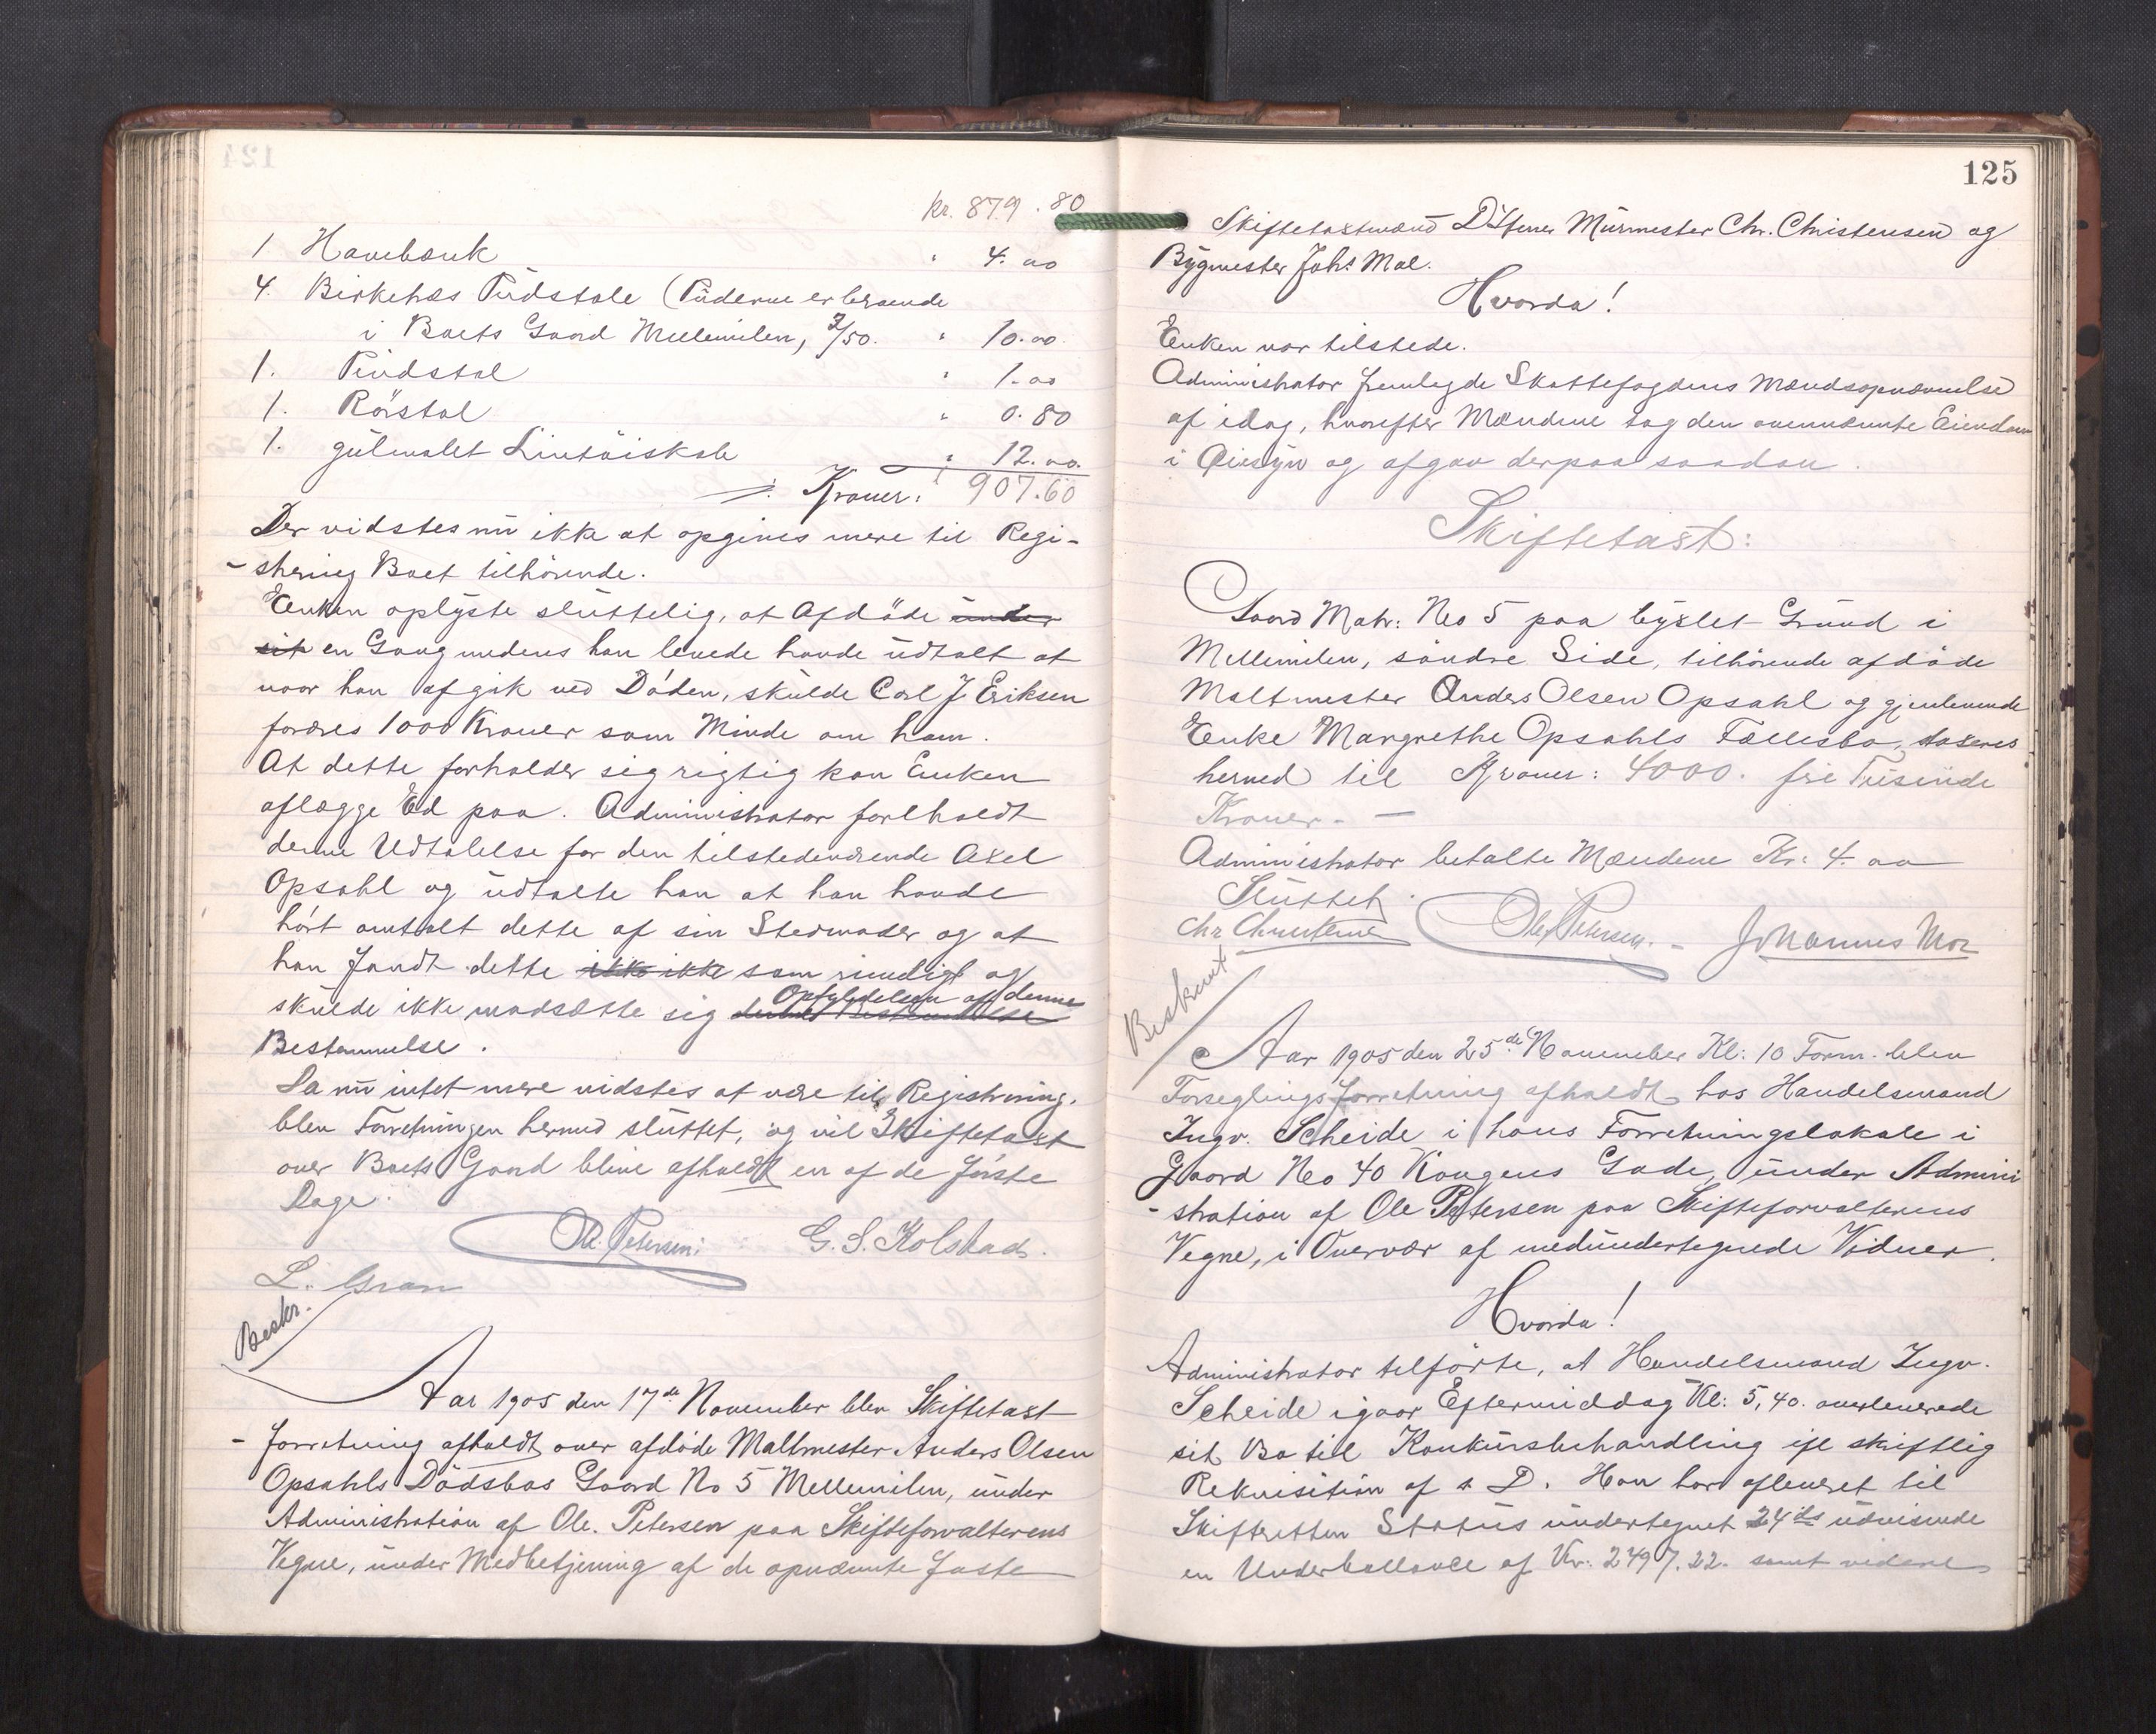 Kr. 879.80
1. Havebænk " 4.00
4. Birketræs Pudstole (Puderne er beroende
i Boets Gaard Mellemilen, 2/50. " 10.00
1. Pindstol " 1.00
1. Rörstol " 0.80
1. gulmalet Lintöiskab " 12.00.
Kroner: 907.60
Der vidstes nu ikke at opgives mere til Regi-
-strering Boet tilhörende.
Enken oplyste sluttelig, at Afdöde under
sit en Gang medens han levede havde udtalt at
naar han afgik ved Döden, skulde Carl J Eriksen
foræres 1000 Kroner som Minde om ham.
At dette forholder sig rigtig kan Enken
aflægge Ed paa. Administrator forlholdt
denne Udtalelse for den tilstedeværende Axel
Opsahl og udtalte han at han havde
hört omtalt dette af sin Stedmoder og at
han fandt dette ikke ikke som rimeligt og
Opfyldelsen af denne
skulde ikke modsætte sig denne Bestemmelse
Bestemmelse.
Da nu intet mere vidstes at være til Registrering,
blev Forretningen hermed sluttet, og vil Skiftetaxt
over Boets Gaard blive afholdt en af de förste
Dage.
Ole Petersen. G. S. Kolstad.
L. Gran
Beskr.
Aar 1905 den 17de November blev Skiftetaxt
- forretning afholdt over afdöde Maltmester Anders Olsen
Opsahls Dödsbos Gaard No 5 Mellemilen, under
Administration af Ole. Petersen paa Skifteforvalterens
Vegne, under Medbetjening af de opnævnte faste
125
Skiftetaxtmænd DHerrer Murmester Chr. Christensen og
Bygmester Johs Moe.
Hvorda!
Enken var tilstede.
Administrator fremlegde Skattefogdens Mændsopnævnelse
af idag, hvorefter Mændene tog den ovennævnte Eiendom
i Öiesyn og afgav derpaa saadan.
Skiftetaxt:
Gaard Matr: No 5 paa byxlet Grund i
Mellemilen, söndre Side, tilhörende afdöde
Maltmester Anders Olsen Opsahl og gjenlevende
Enke Margrethe Opsahls Fællesbo, taxeres
herved til Kroner: 4000. fire Tusinde
Kroner. -
Administrator betalte Mændene Kr: 4.00
Sluttet.
Chr Christensen Ole Petersen. - Johannes Moe
Beskrevet
Aar 1905 den 25de November Kl: 10 Form. blev
Forseglingsforretning afholdt hos Handelsmand
Ingv. Scheide i hans Forretningslokale i
Gaard No 40 Kongens Gade, under Admini
- stration af Ole Petersen paa Skifteforvalterens
Vegne, i Overvær af medundertegnede Vidner.
Hvorda!
Administrator tilförte, at Handelsmand Ingv.
Scheide igaar Eftermiddag Kl: 5,40. overleverede
sit Bo til Konkursbehandling ifl skriftlig
Rekvisition af s D. Han har afleveret til
Skifteretten Status undertegnet 24ds udvisende
en Underballance af Kr: 2497.22. samt videre